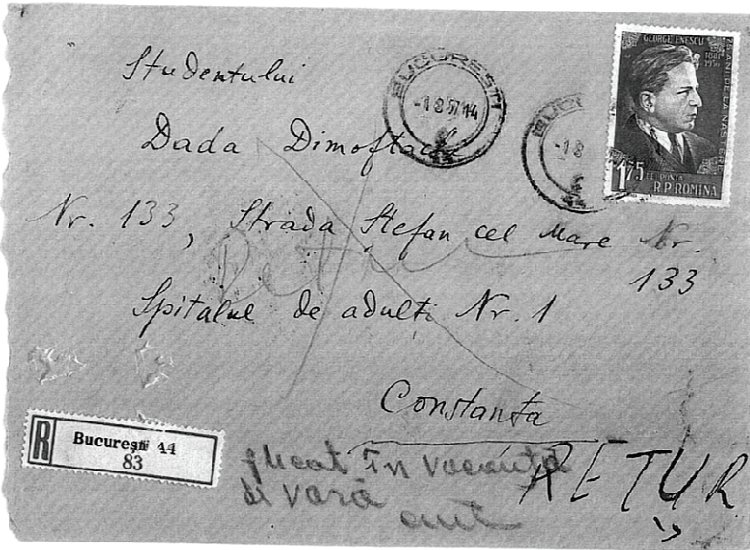 Studentului
Dada Dimoftache
Nr. 133, Strada Ștefan cel Mare Nr.
133
Spitalul de adulți Nr. 1
Constanța
BUCUREȘTI
-1 8 57 14
-1 8
GEORGE ENESCU
1881
1956
1 75
R.P.ROMINA
R
București 44
83
plecat în vacanță
de vară
RETUR